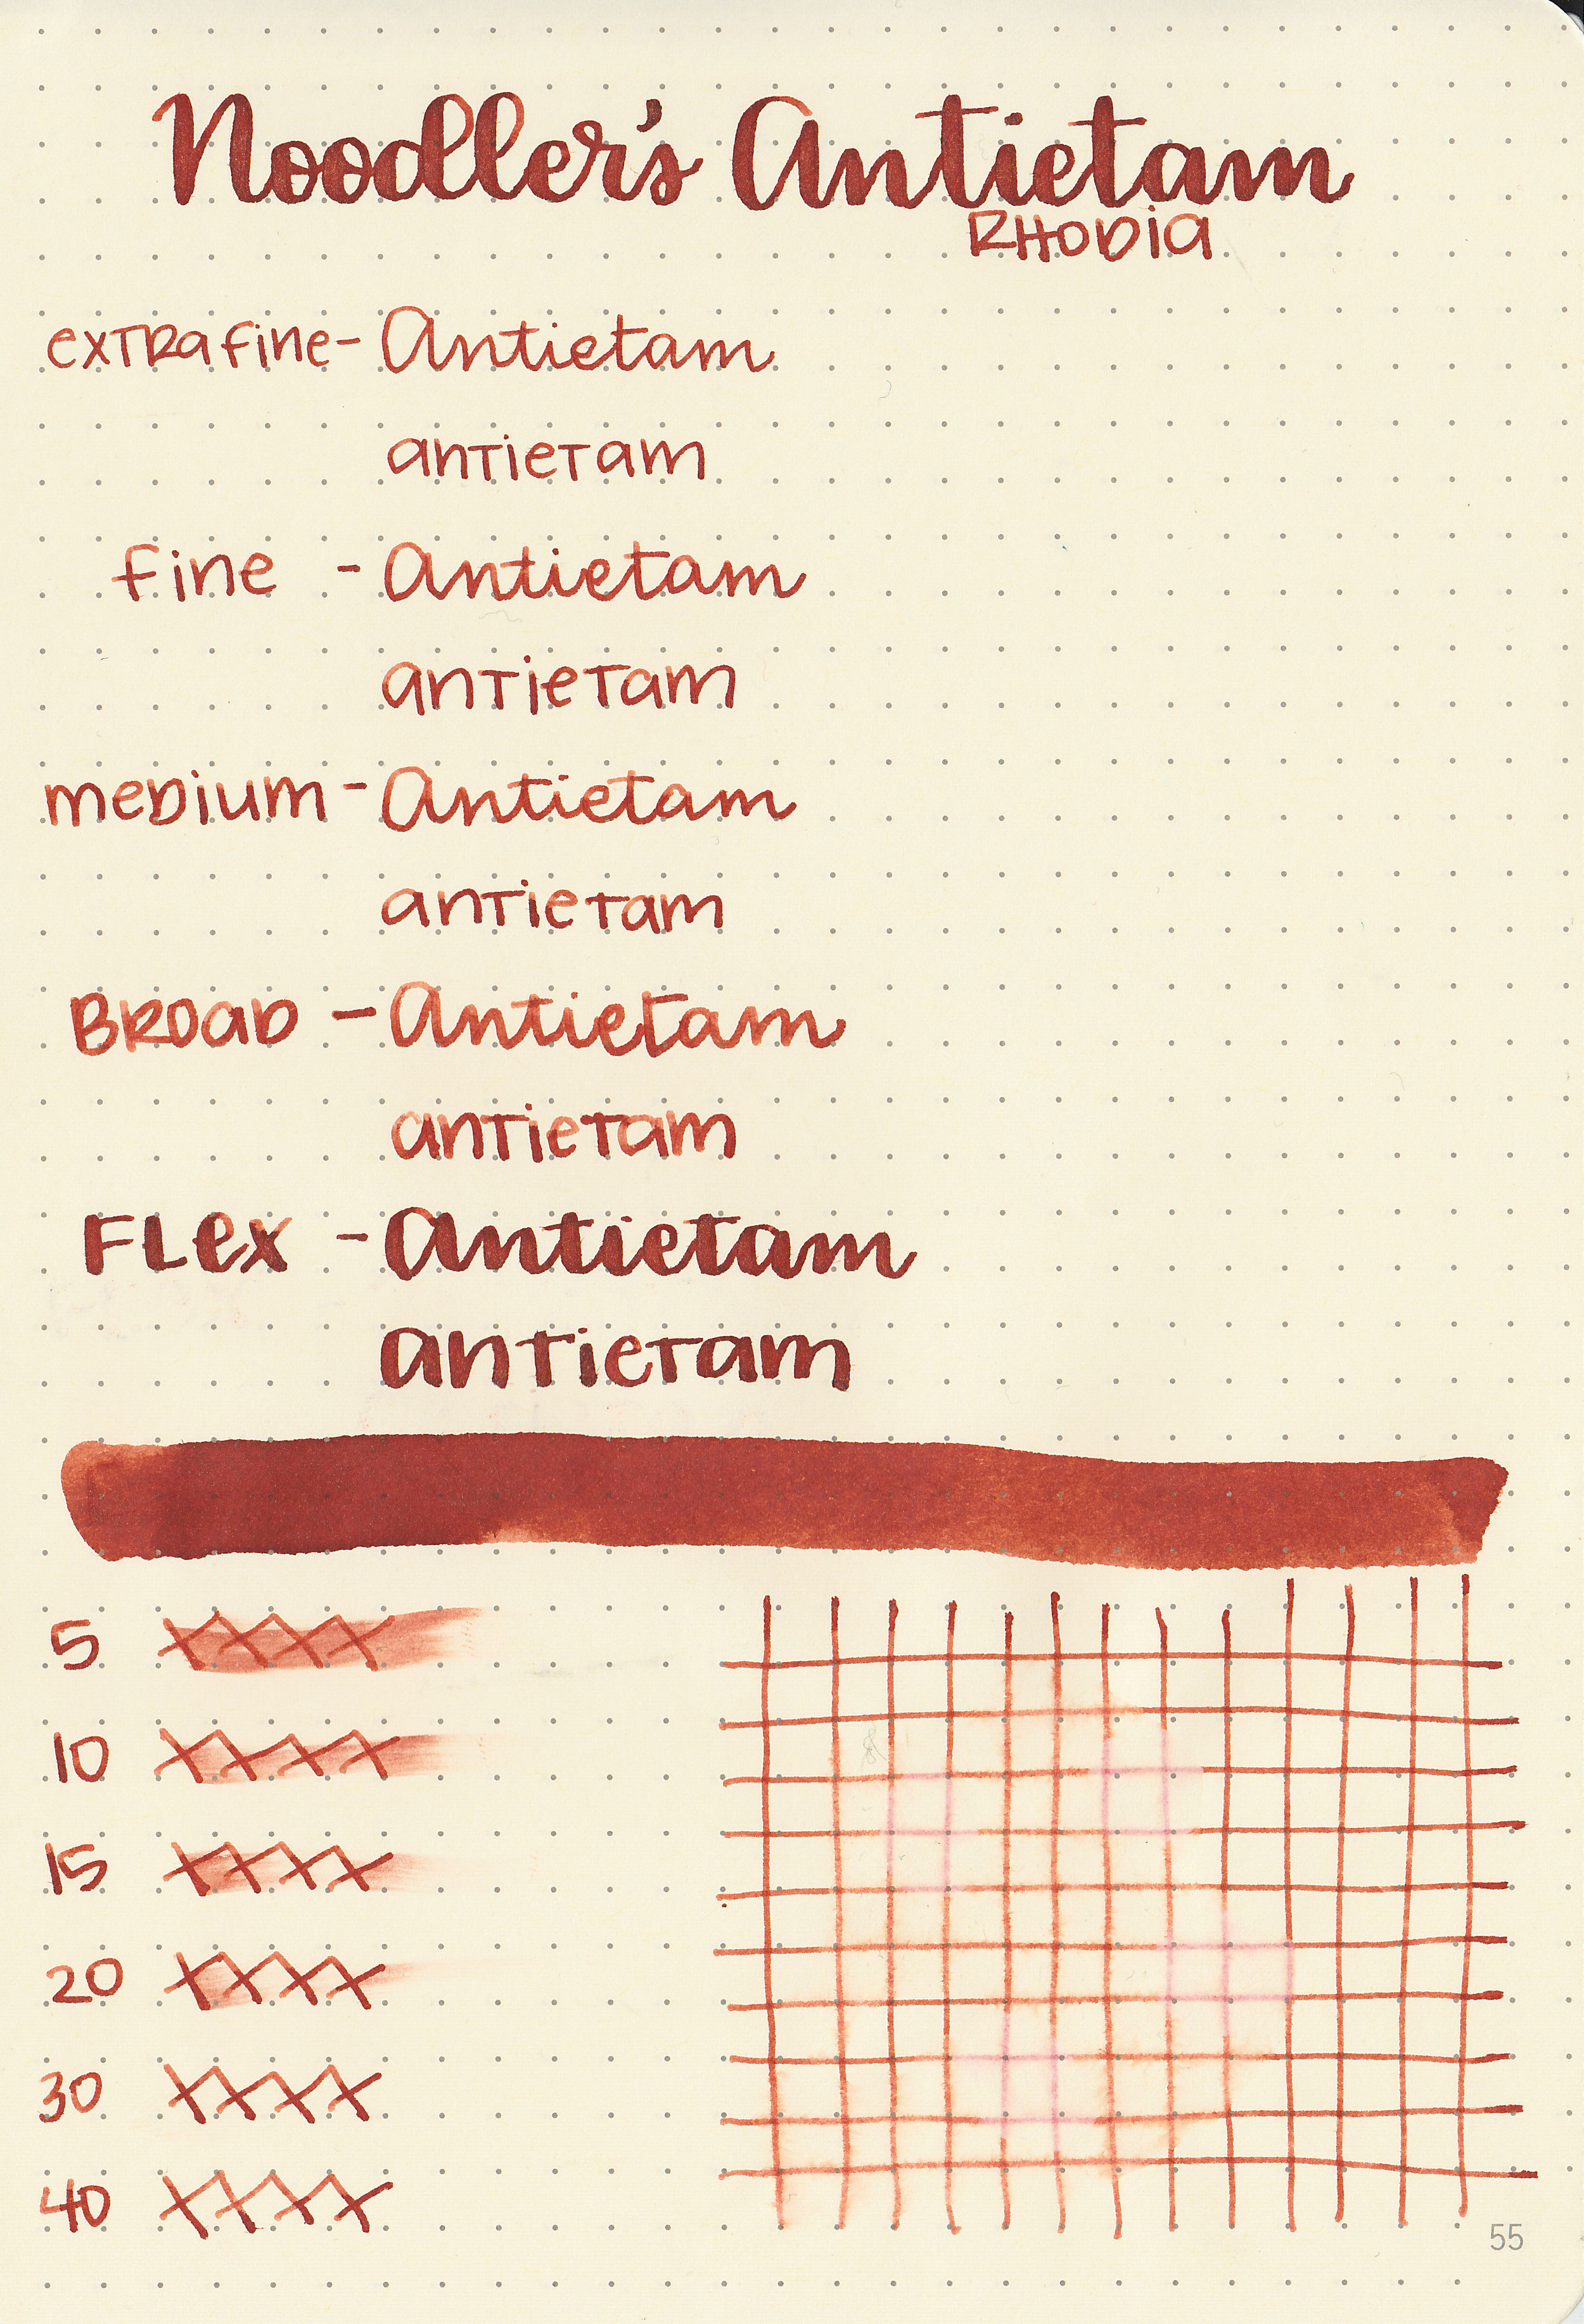 Noodler's Antietam
RHODIA
extra fine - Antietam
antietam
fine - Antietam
antietam
medium - Antietam
antietam
BROAD - Antietam
antietam
FLex - Antietam
antietam
5 XXXX
10 XXXX
15 XXXX
20 XXXX
30 XXXX
40 XXXX
55